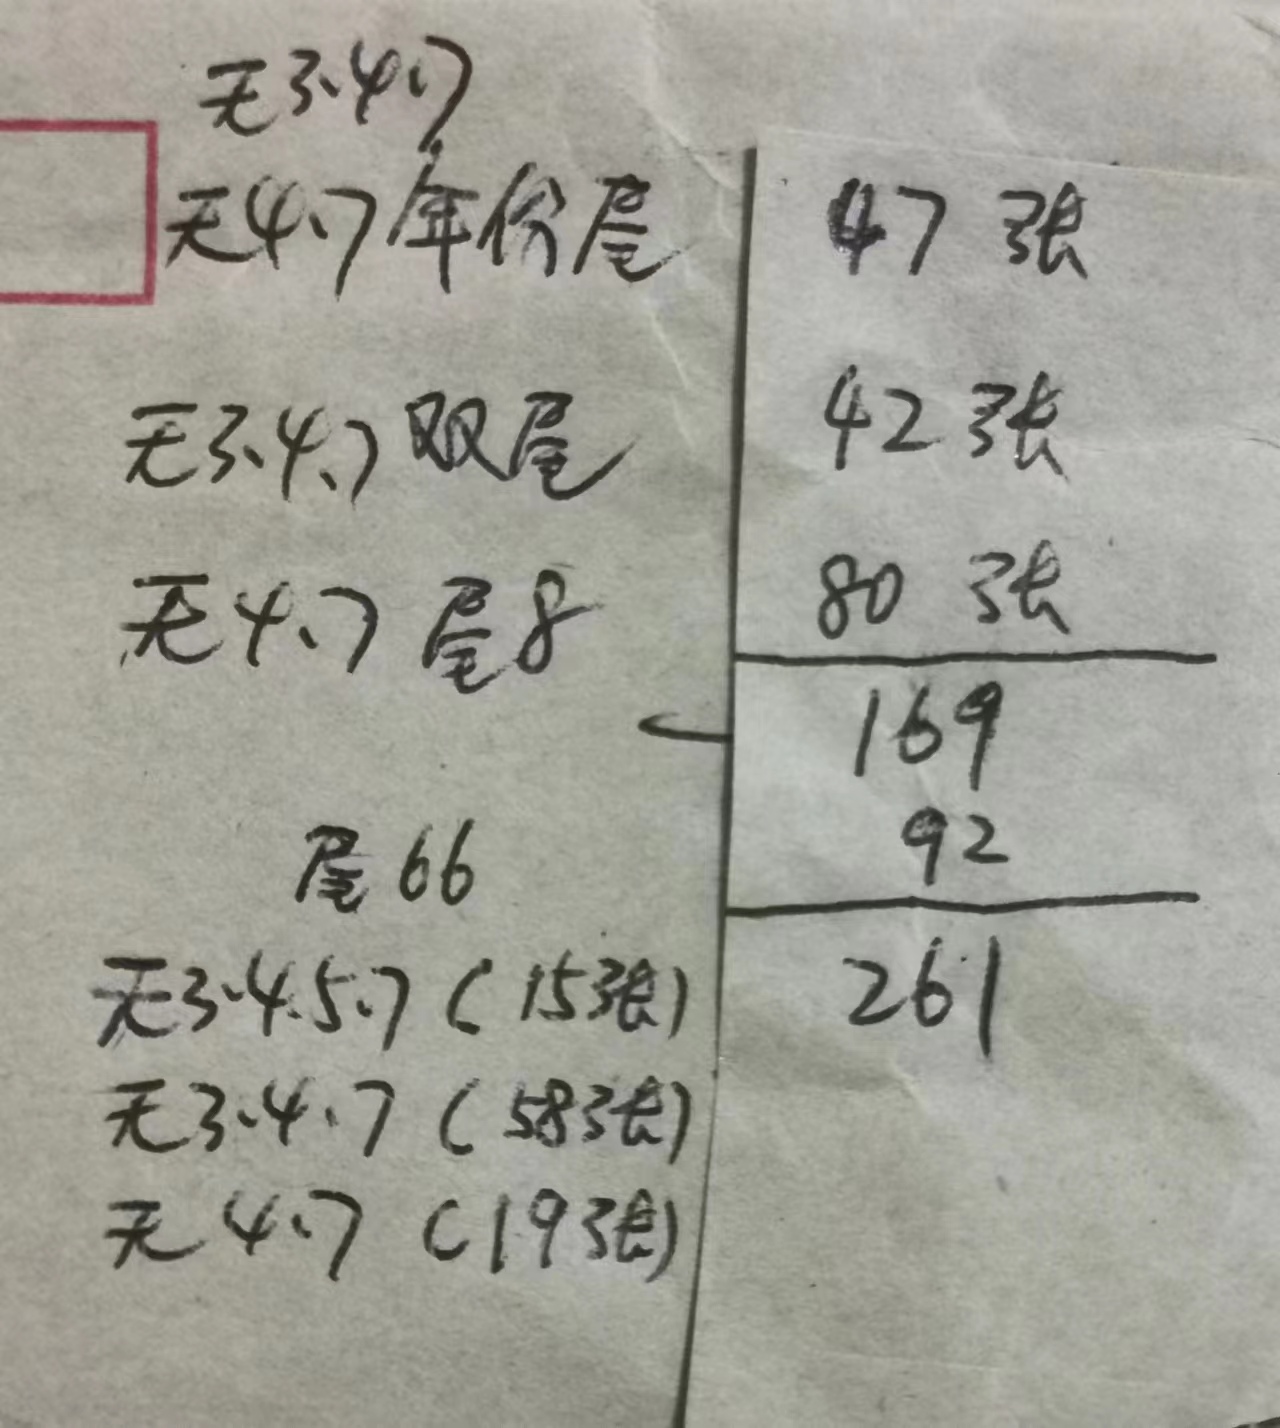 无3.4.7
无4.7年份尾 47张
无3.4.7双尾 42张
无4.7尾8 80张
169
92
尾66
无3.4.5.7(15张) 261
无3.4.7(58张)
无4.7(19张)